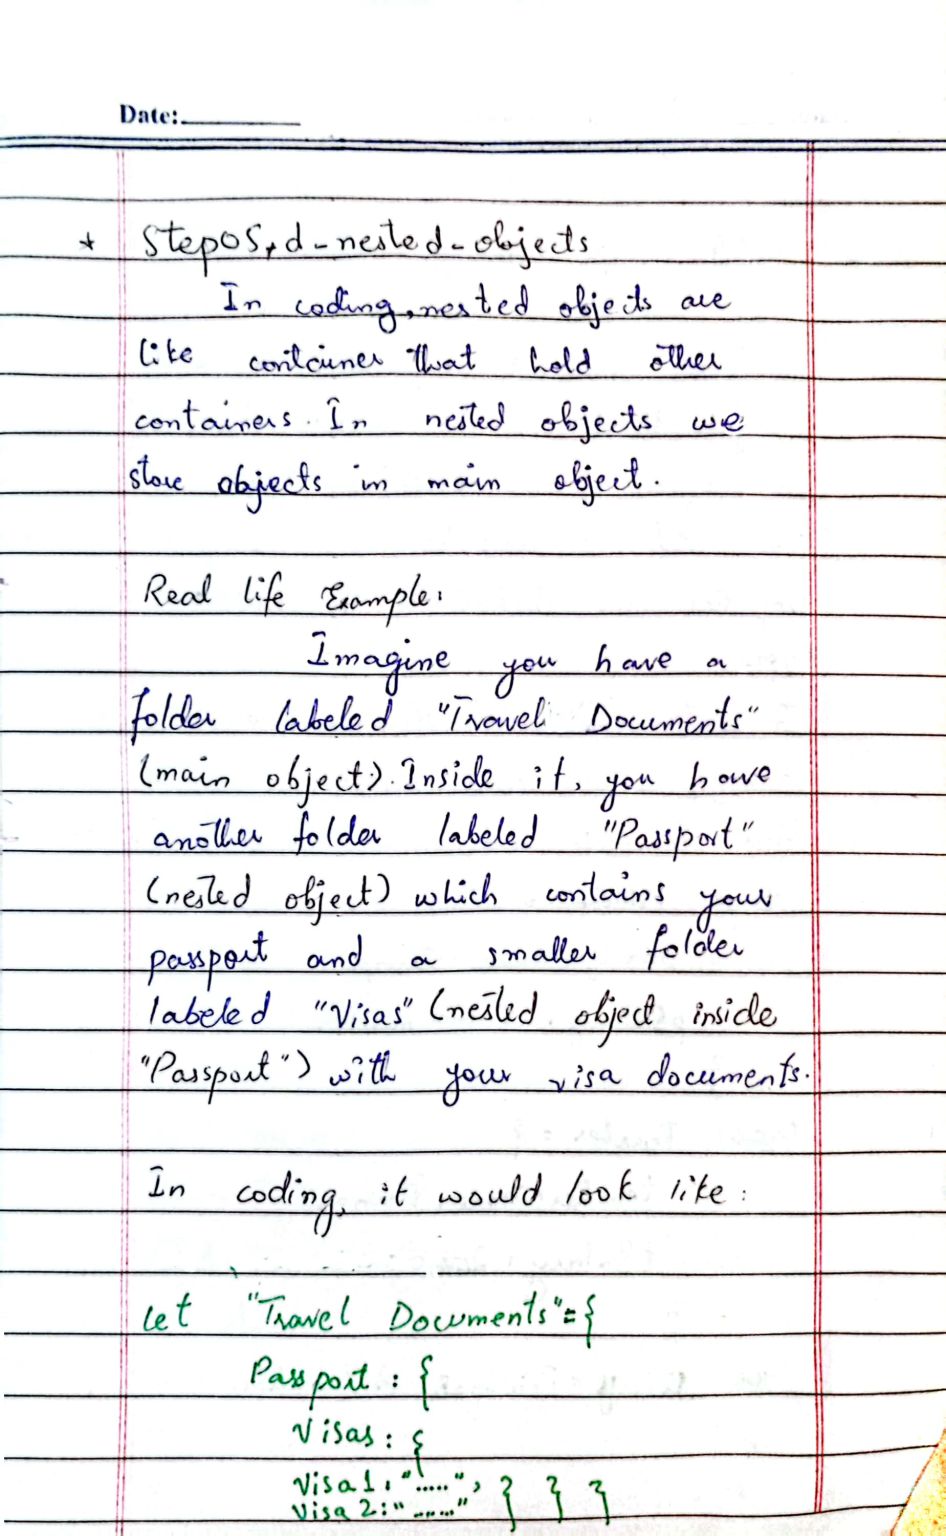 Date:
* Step05,d-nested-objects
In coding, nested objects are
like container that hold other
containers. In nested objects we
store objects in main object.
Real life Example:
Imagine you have a
folder labeled "Travel Documents"
(main object). Inside it, you have
another folder labeled "Passport"
(nested object) which contains your
passport and a smaller folder
labeled "Visas" (nested object inside
"Passport") with your visa documents.
In coding, it would look like:
let "Travel Documents"={
Passport: {
Visas: {
Visa1: ".....",
Visa 2: "......" } } }